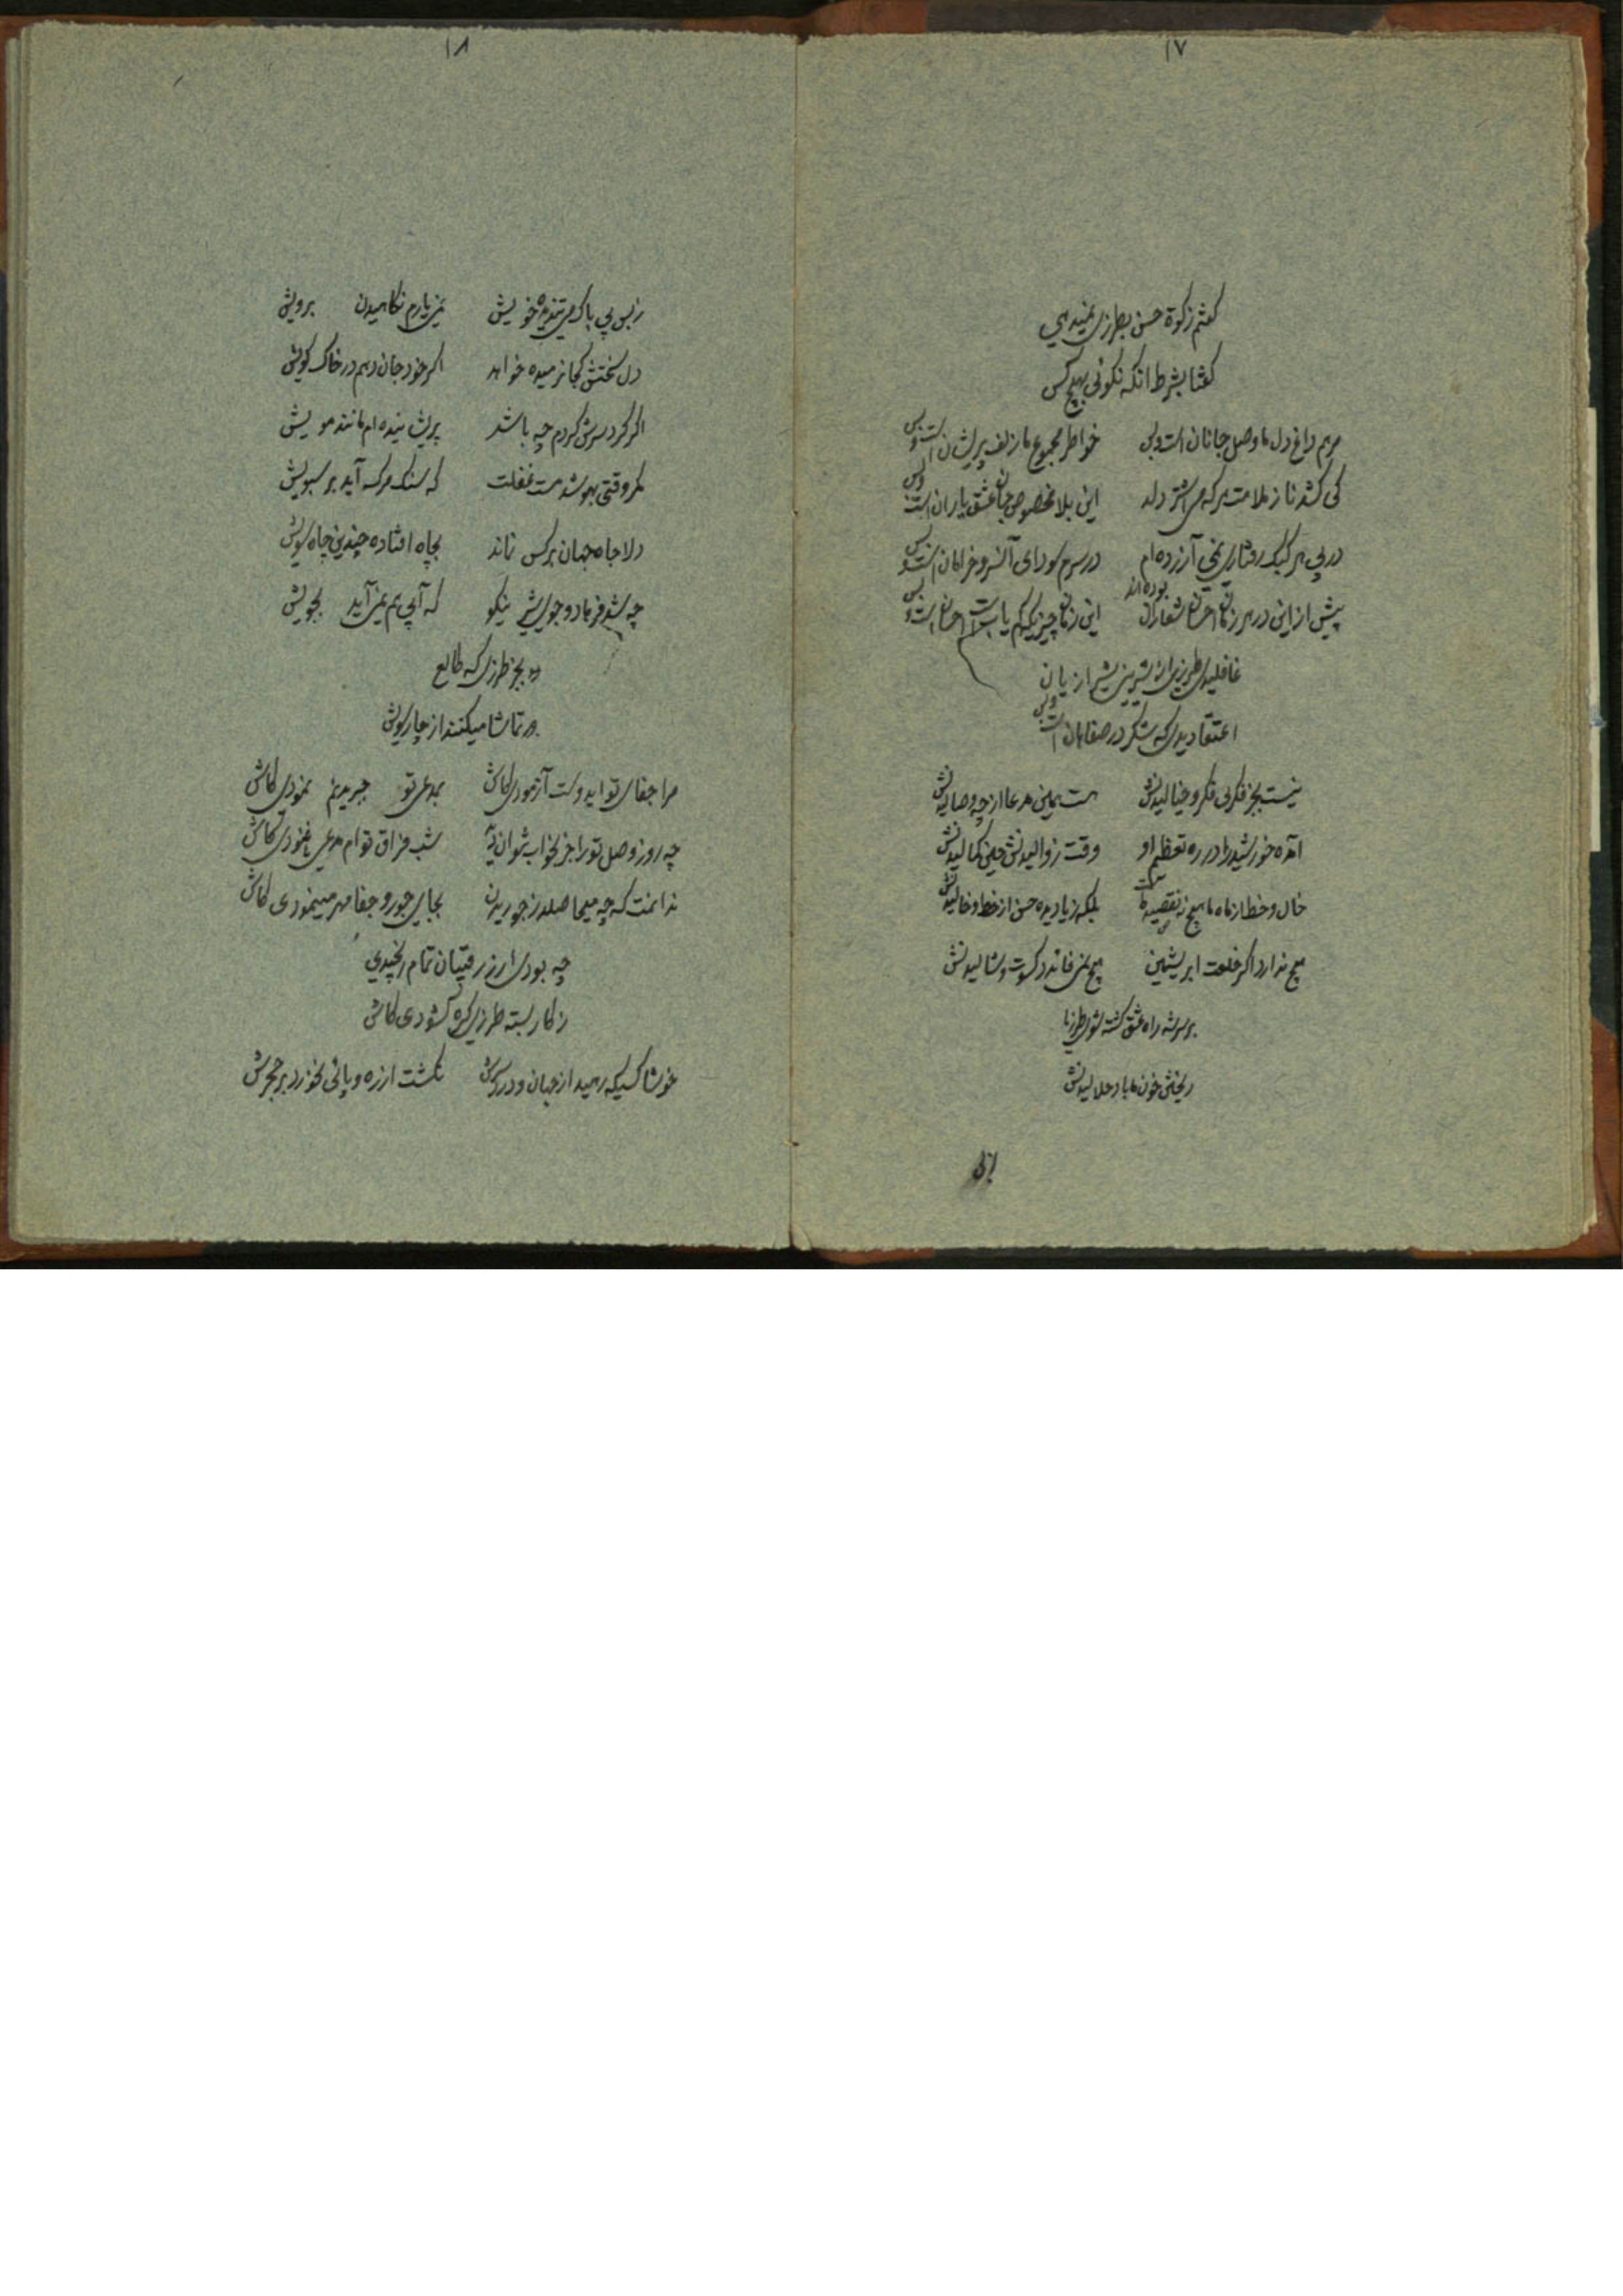 ۱۷
گفتم زکوة حسن بطرزی نمیدهی
گفتا بشرط آنکه نگوئی بهیچ کس
مرهم داغ دل ما وصل جانان است وبس خواطر مجموع ما زلف پریشان است وبس
کی کشد ناز ملامت هر که می دلد این بلا مخصوص عشق یاران است وبس
در پی هر کبک رفتاری نمی آرزده ام در سرم سودای آن سرو خرامان است وبس
پیش از این در هر زمان احسان شعاران بوده اند این زمان چیزیکه کم یاب است احسان است وبس
غافلیدی طرزی از شیرینی شیرازیان
اعتقادیدی که شکر در صفاهان است وبس
نیست بجز فکر لبی فکر و خیالیدنش هست همین مدعا از چه وصالیدنش
آمده خورشید را در ره تعظیم او وقت زوالیدنش عین کمالیدنش
خال و خط از ماه ما هیچ نه نقصیده است بلکه زیادیده حسن از خط و خالیدنش
هیچ ندارد اگر خلعت ابریشمین هیچ نمی فاندد کسوت و شالیدنش
بر سر شه راه عشق گشته شوی طرزیا
ریختن خون ما باد حلالیدنش
۱۸
ز بس بی باک می تندیده خویش نمی یارم نگاهیدن برویش
دل سختش کجا نرمیده خواهد اگر خود جان دهم در خاک کویش
اگر گرد سرش گردم چه باشد پریشانیده ام مانند مویش
مگر وقتی بهوشد مست غفلت که سنگ مرگ آید بر سبویش
دلا جاه جهان بر کس نماند بچاه افتاده چندین جاه سویش
چه شد فرهاد و جوی شیر نیکو که آبی هم نمی آید بجویش
بجز طرزی که طالع
تماشا میکنند از چار سویش
مرا جفای تو ایدوست آزمودی کاش بمدعی تو جبریدنم نمودی کاش
چه روز وصل تو را جز بخواب نتوان دید شب فراق تو ام مدعی نغنودی کاش
ندانمت که چه میحاصلد ز جوریدن بجایی جور و جفا مهر مینمودی کاش
چه بودی ار ز رقیبان تمام رنجیدی
ز کار بسته طرزی گره گشودی کاش
خوشا کسیکه رمید از جهان و در گذرش نگشت ارزه و پائی نخورد بر حجرش